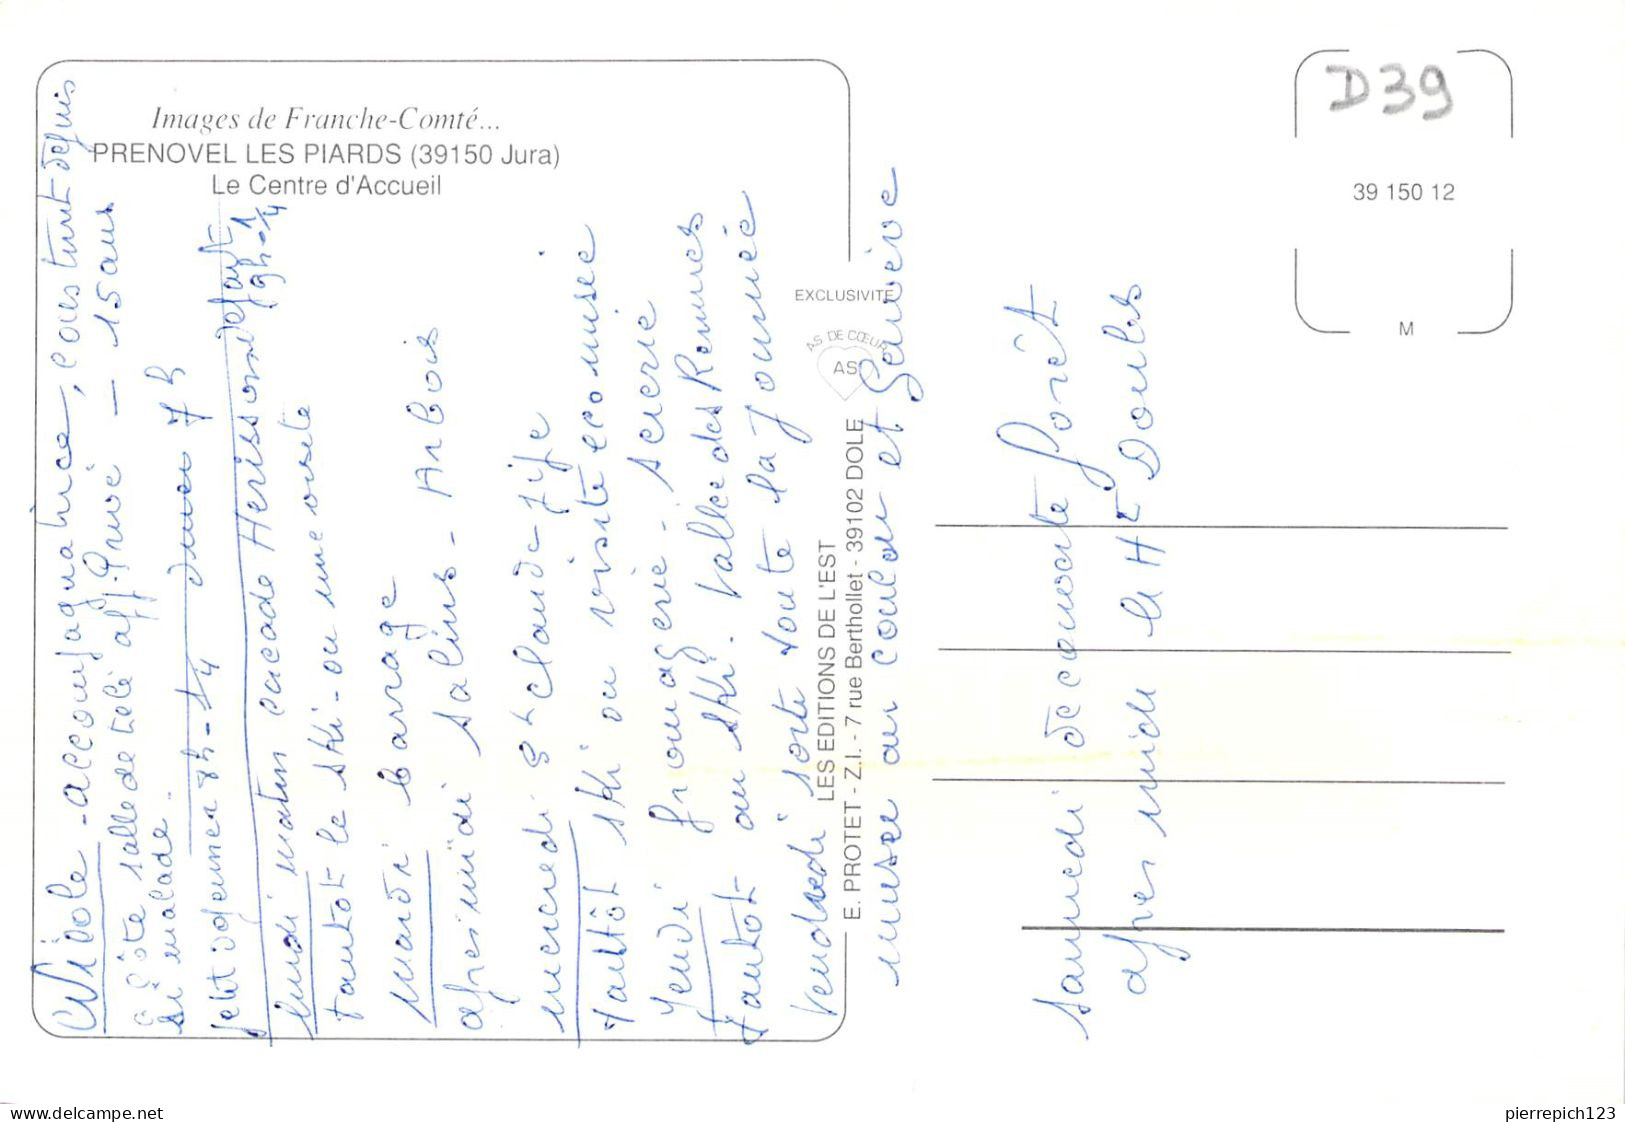 Images de Franche-Comté...
PRENOVEL LES PIARDS (39150 Jura)
Le Centre d'Accueil
D39
39 150 12
M
EXCLUSIVITE
AS DE CŒUR
AS
LES EDITIONS DE L'EST
E. PROTET - Z.I. - 7 rue Berthollet - 39102 DOLE
Nicole - accompagnatrice, cous tout depuis
à côté salle de télé aff. Privé - 15 ans
si malade.
petit dejeuner 8h - 1/4 diner 7h
depart 9h - 1/4
lundi matin cacade Herisson
tantot le ski - ou une visite
mardi barrage
apresmidi salins - Arbois
mercredi St Claude pipe
tantôt ski ou visite ecomusée
Jeudi fromagerie - scierie
tantot ou ski. Vallee des Rennes
Vendredi sortie toute la journée
musee au couleu et Genève
samedi decouverte forêt
apres midi la Ht Doubs
delcampe.net
pierrepich123